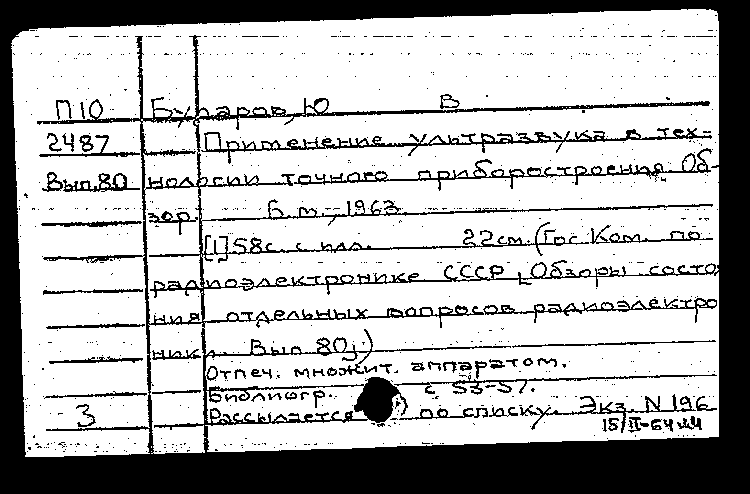 П10 Бугаров, Ю В
2487 Применение ультразвука в тех-
Вып.80 нологии точного приборостроения. Об-
зор. Б.м., 1963.
[1] 58с. с илл. 22см. (Гос. Ком. по
радиоэлектронике СССР. Обзоры состо
ния отдельных вопросов радиоэлектро
ники. Вып. 80.)
Отпеч. множит. аппаратом.
Библиогр. с 53-57.
3 Рассылается по списку. Экз. N 196
15/II-64